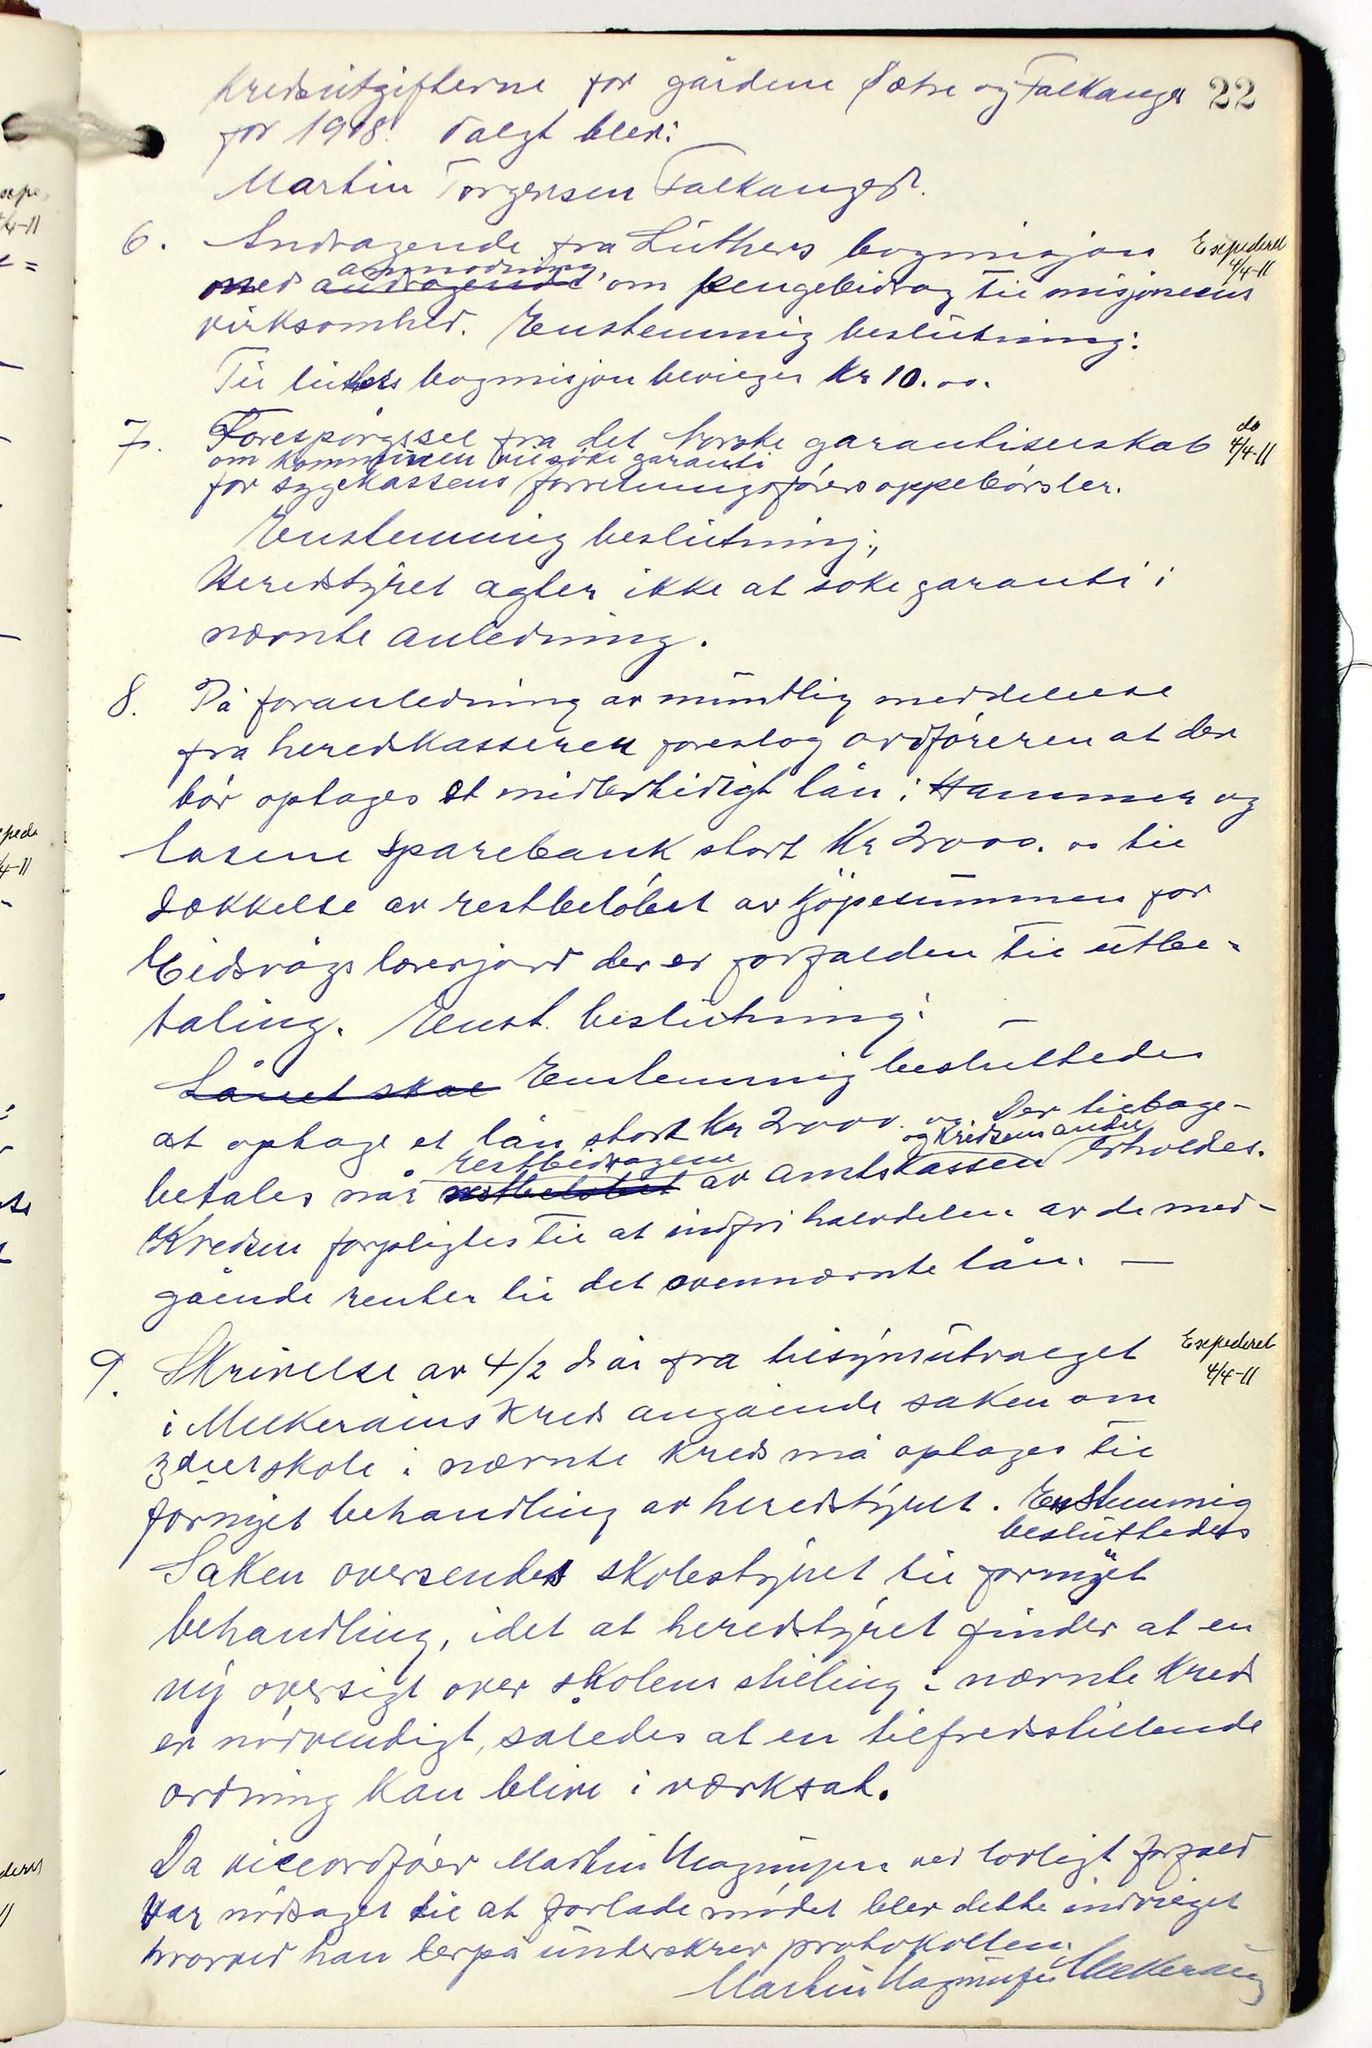 Kredsutgifterne for gårdene Sætre og Falkanger 22
for 1908. Valgt blev:
Martin Torgersen Falkanger.
6. Andragende fra Luthers bogmisjon Expederet 4/4-11
anmodning
med andragende om pengebidrag til misjonens
virksomhed. Enstemmig beslutning:
Til luthers bogmisjon bevilges Kr 10.00.
7. Forespørgsel fra det Norske garantiselskab do 4/4-11
om kommunen vil søke garanti
for sygekassens forretningsførers oppebørsler.
Enstemmig beslutning:
Heredstyret agter ikke at søke garanti i
nævnte anledning.
8. På foranledning av mundtlig meddelelse
fra heredkasseren foreslog ordføreren at der
bør optages et midlertidigt lån i Hammer og
Sparebank stort Kr 2000.00 til
dækkelse av restbeløbet av kjøpesummen for
Eidsvågs lærerjord der er forfalden til utbe-
taling. Enst. beslutning: —
Lånet skal Enstemmig besluttedes
at optage et lån stort Kr 2000.00 Der tilbage-
restbidragene og Kredsens andel
betales når restbeløbet av amtskassen erholdes.
Kredsen forpligtes til at indfri halvdelen av de med-
gående renter til det ovennævnte lån. —
9. Skrivelse av 4/2 ds år fra tilsynsutvalget Expederet
i Melkeråens Kreds angående saken om 4/4-11
3delt skole i nævnte kreds må optages til
fornyet behandling av heredstyret. Enstemmig
besluttedes
Saken oversendes skolestyret til fornyet
behandling, idet at heredstyret finder at en
ny oversigt over skolens stilling i nævnte Kreds
er nødvendigt, således at en tilfredstillende
ordning kan blive i værksat.
Da viceordfører Martin Magnusen ved lovligt forfald
var nødsaget til at forlade mødet blev dette indvilget
hvorved han herpå underskrev protokollen.
Martin Magnusen Melkeråen